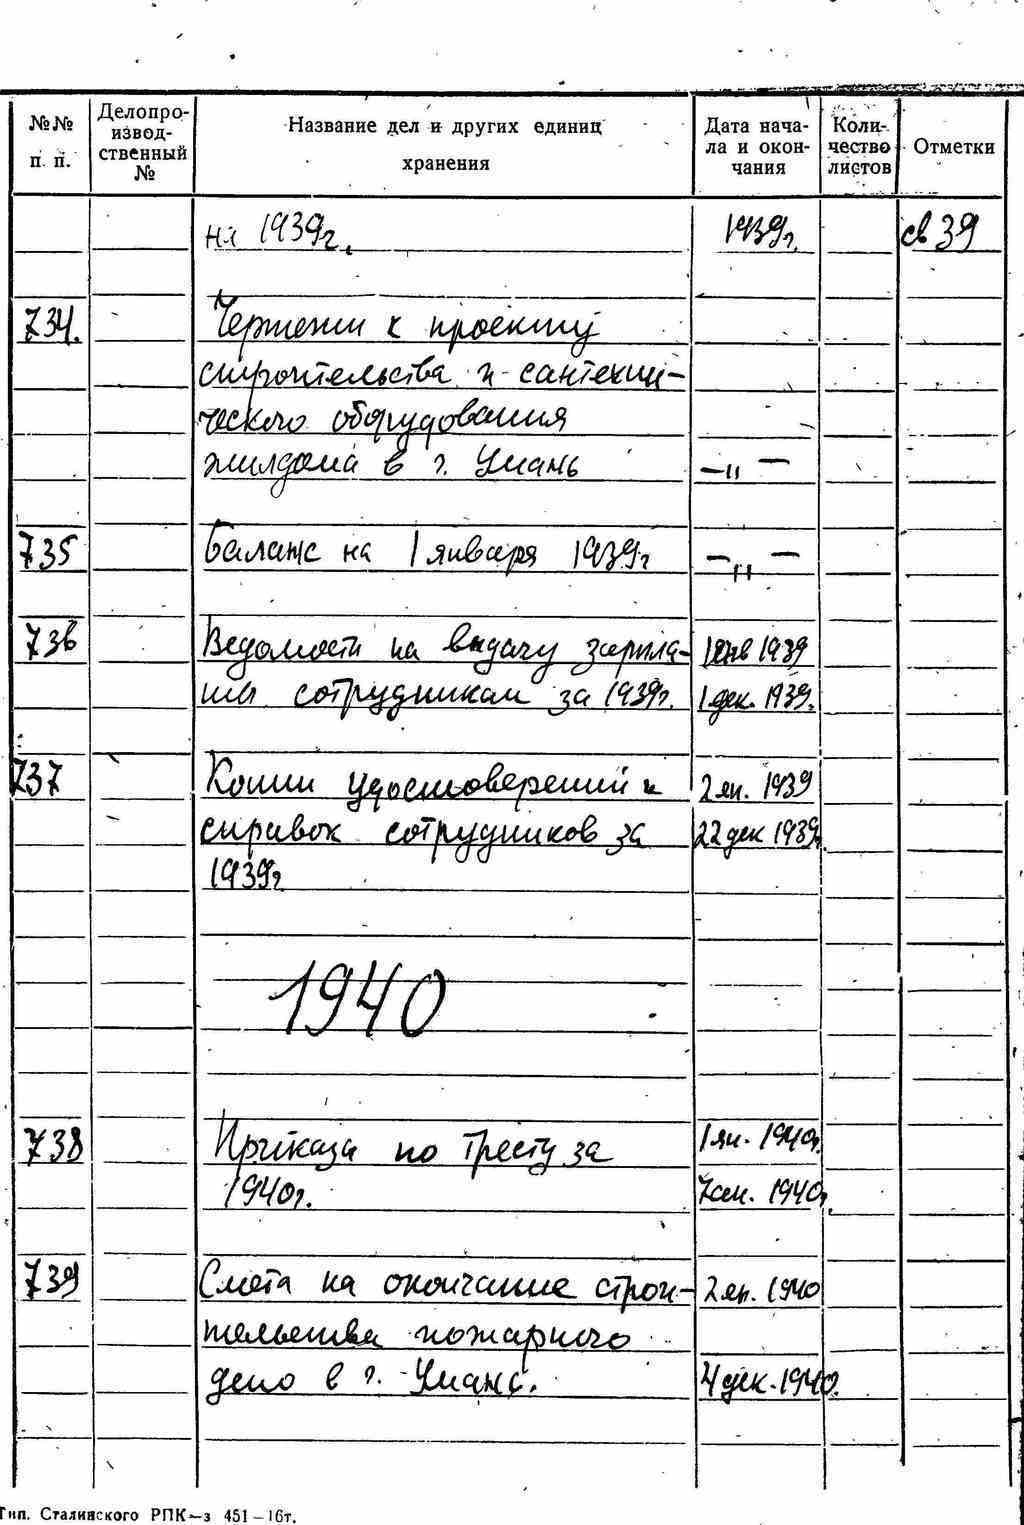 №№ п. п.
Делопро-
извод-
ственный
№
Название дел и других единиц
хранения
Дата нача-
ла и окон-
чания
Коли-
чество
листов
Отметки
на 1939г. 1939г. св 39
734. Чертежи к проекту
строительства и сантехни-
ческого оборудования
жилдома в г. Умань —„—
735 Баланс на 1 января 1939г —„—
736 Ведомости на выдачу зарпла- 1 янв 1939
ты сотрудникам за 1939г. 1 дек. 1939г.
737 Копии удостоверений и 2 ян. 1939
справок сотрудников за 22 дек 1939г.
1939г
1940
738 Приказы по Тресту за 1 ян. 1940г.
1940г. 7 1940г.
739 Смета на окончание строи- 2 ян. 1940
тельства пожарного
депо в г. Умань. 4 дек. 1940.
Тип. Сталинского РПК—з 451—16т.